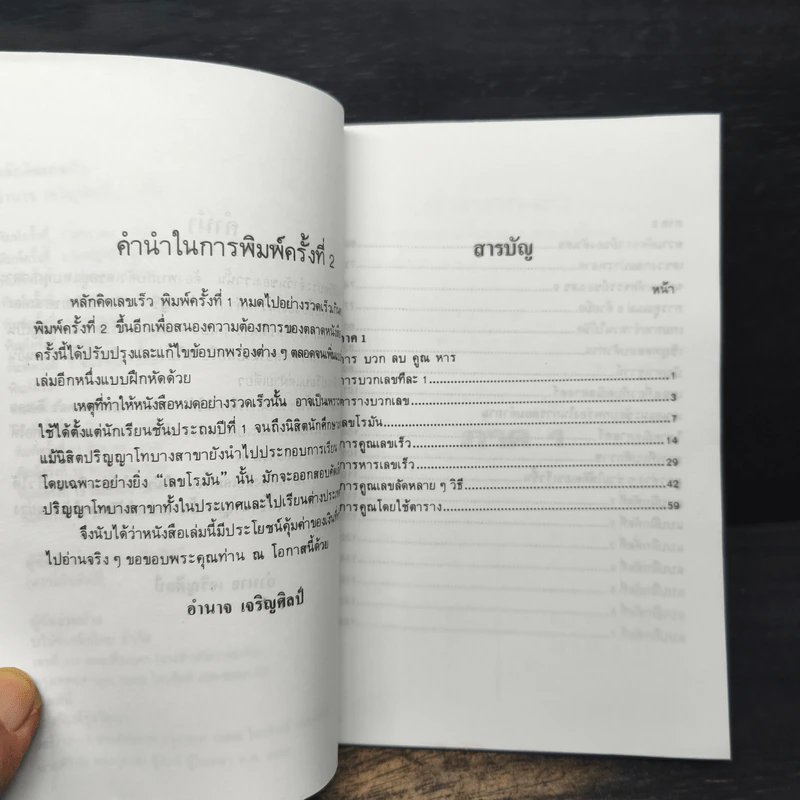 คำนำในการพิมพ์ครั้งที่ 2
หลักคิดเลขเร็ว พิมพ์ครั้งที่ 1 หมดไปอย่างรวดเร็ว
พิมพ์ครั้งที่ 2 ขึ้นอีกเพื่อสนองความต้องการของตลาด
ครั้งนี้ได้ปรับปรุงและแก้ไขข้อบกพร่องต่าง ๆ ตลอดจน
เล่มอีกหนึ่งแบบฝึกหัดด้วย
เหตุที่ทำให้หนังสือหมดอย่างรวดเร็วนั้น อาจเป็น
ใช้ได้ตั้งแต่นักเรียนชั้นประถมปีที่ 1 จนถึงนิสิต
แม้นิสิตปริญญาโทบางสาขายังนำไปประกอบการเรียน
โดยเฉพาะอย่างยิ่ง “เลขโรมัน” นั้น มักจะออกสอบ
ปริญญาโทบางสาขาทั้งในประเทศและไปเรียนต่าง
จึงนับได้ว่าหนังสือเล่มนี้มีประโยชน์คุ้มค่าของเงิน
ไปอ่านจริง ๆ ขอขอบพระคุณท่าน ณ โอกาสนี้ด้วย
อำนาจ เจริญศิลป์
สารบัญ
หน้า
าค 1
าร บวก ลบ คูณ หาร
ารบวกเลขทีละ 1 1
ารางบวกเลข 3
ลขโรมัน 7
ารคูณเลขเร็ว 14
ารหารเลขเร็ว 29
ารคูณเลขลัดหลาย ๆ วิธี 42
ารคูณโดยใช้ตาราง 59